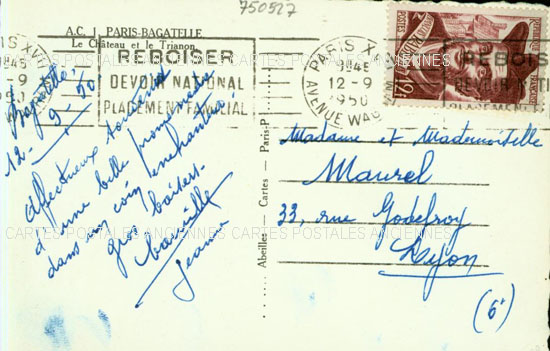 750527
A.C. 1. PARIS-BAGATELLE
Le Château et le Trianon
REBOISER
DEVOIR NATIONAL
PLACEMENT FAMILIAL
PARIS XVI
9H45
12-9
1950
AVENUE WAG
REBOISER
POSTES
FRANÇAISE
Bagatelle
12-9-50
Affectueux souvenir
d'une belle promenade
dans un coin enchanteur
gros baisers
Jeanne
Abeille-Cartes - Paris-P
Madame et Mademoiselle
Maurel
33, rue Godefroy
Lyon
(6e)
CARTES POSTALES ANCIENNES